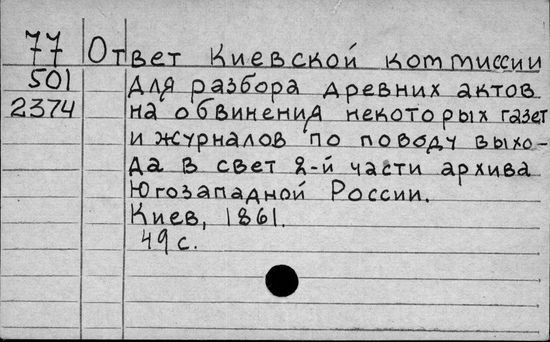 77 Ответ Киевской коммиссии
501 для разбора древних актов
2374 на обвинения некоторых газет
и журналов по поводу выхо-
да в свет 2-й части архива
Югозападной России.
Киев, 1861.
49 с.